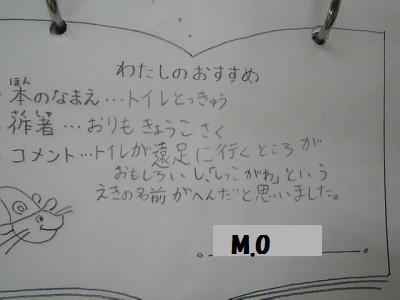 わたしのおすすめ
本のなまえ…トイレとっきゅう
ほん
作著…おりもきょうこ さく
コメント…トイレが遠足に行くところが
おもしろいし、「しっこがわ」という
えきの名前がへんだと思いました。
M.O